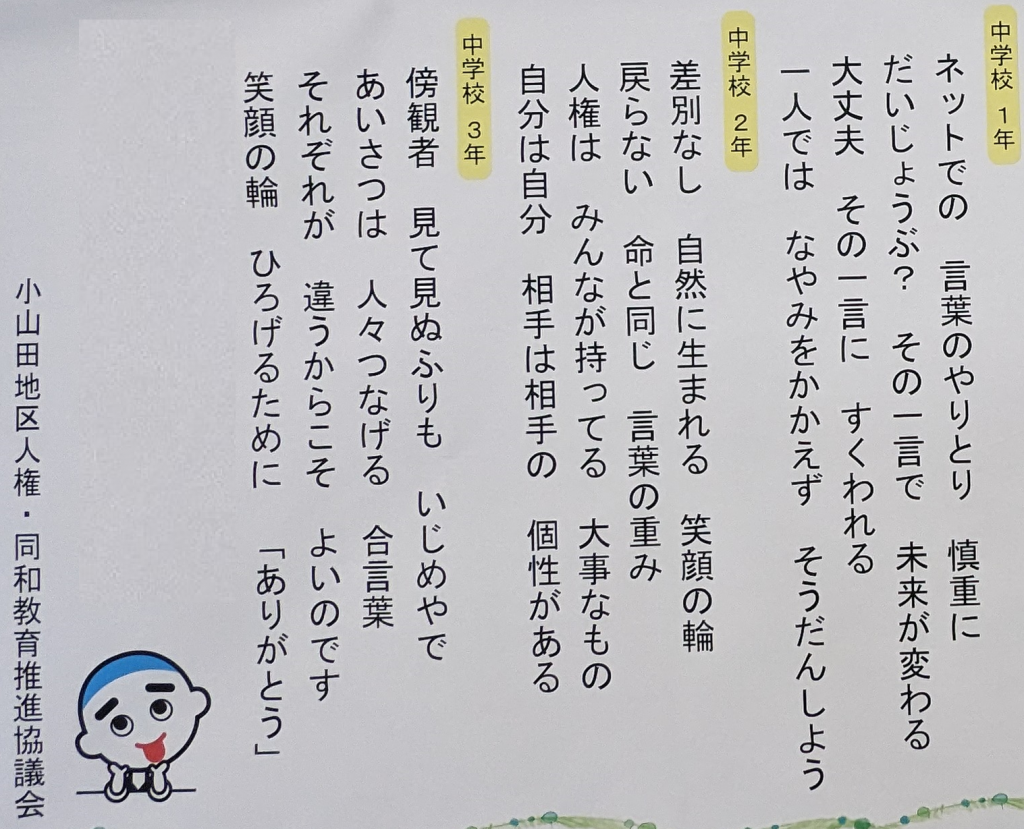 中学校 1年
ネットでの 言葉のやりとり 慎重に
だいじょうぶ? その一言で 未来が変わる
大丈夫 その一言に すくわれる
一人では なやみをかかえず そうだんしよう
中学校 2年
差別なし 自然に生まれる 笑顔の輪
戻らない 命と同じ 言葉の重み
人権は みんなが持ってる 大事なもの
自分は自分 相手は相手の 個性がある
中学校 3年
傍観者 見て見ぬふりも いじめやで
あいさつは 人々つなげる 合言葉
それぞれが 違うからこそ よいのです
笑顔の輪 ひろげるために 「ありがとう」
小山田地区人権・同和教育推進協議会